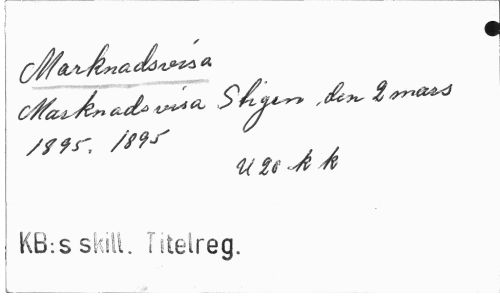 Marknadsvisa
Marknadsvisa Stigen, den 2 mars
1895. 1895
U 20 k k
KB:s skill. Titelreg.